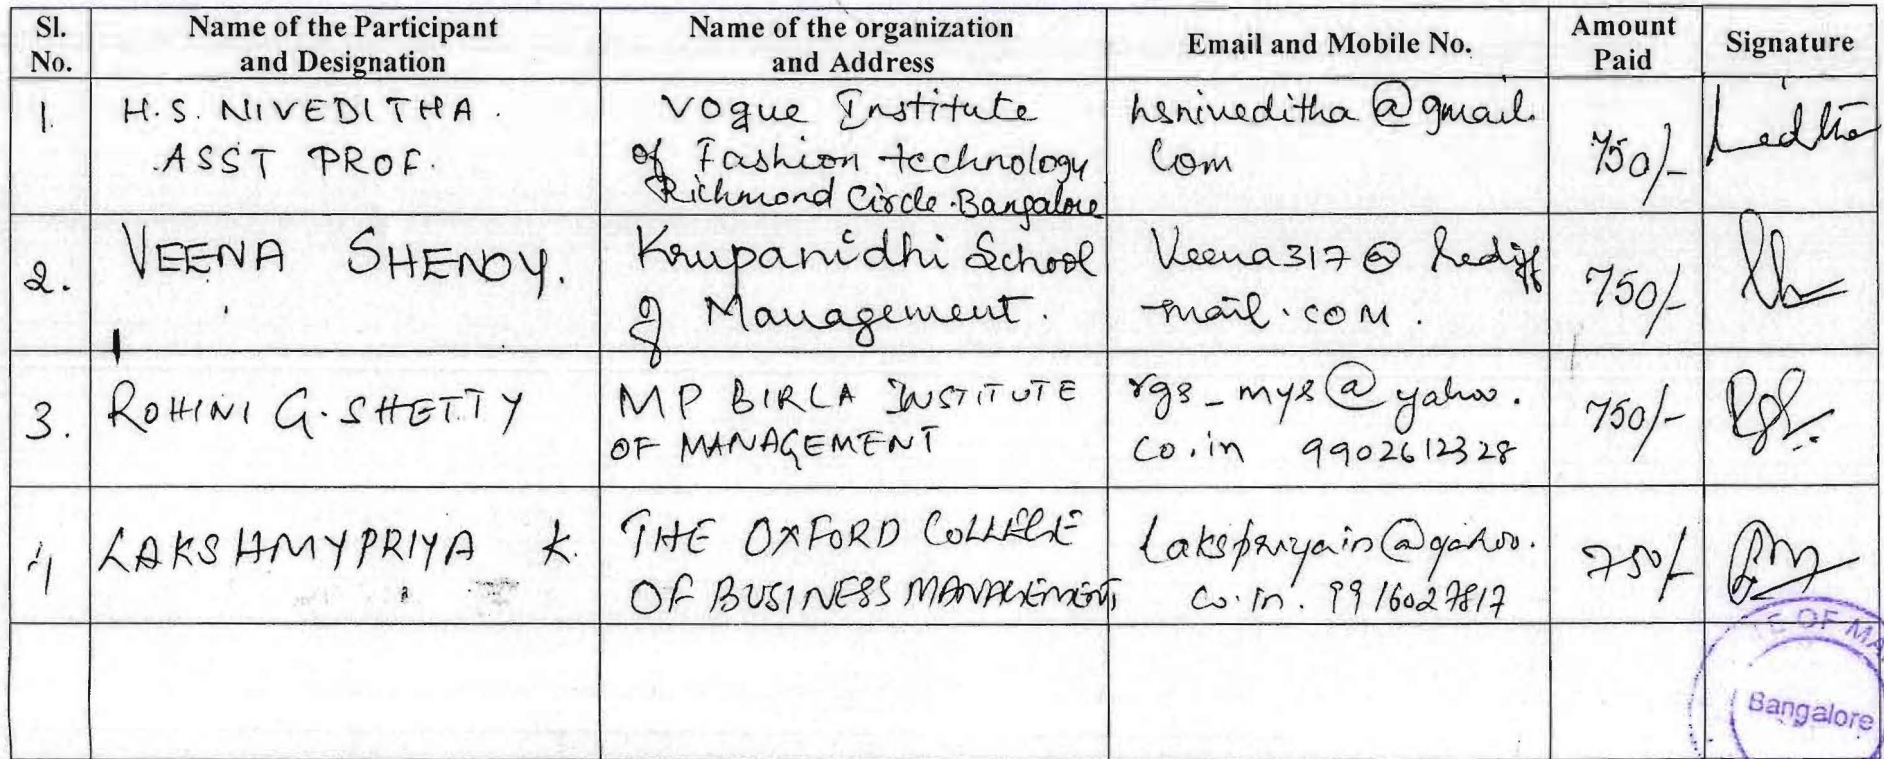 Sl. No.
Name of the Participant and Designation
Name of the organization and Address
Email and Mobile No.
Amount Paid
Signature
1.
H.S. NIVEDITHA.
ASST PROF.
Vogue Institute
of Fashion technology
Richmond Circle. Bangalore
hsniveditha@gmail.
com
750/-
2.
VEENA SHENOY.
Krupanidhi School
of Management.
Veena317@rediff
mail.com.
750/-
3.
ROHINI G. SHETTY
MP BIRLA INSTITUTE
OF MANAGEMENT
rgs_mys@yahoo.
co.in 9902612328
750/-
4
LAKSHMYPRIYA K.
THE OXFORD COLLEGE
OF BUSINESS MANAGEMENT
lakspriyain@yahoo.
co.in. 9916027817
750/-
TE OF MA
Bangalore